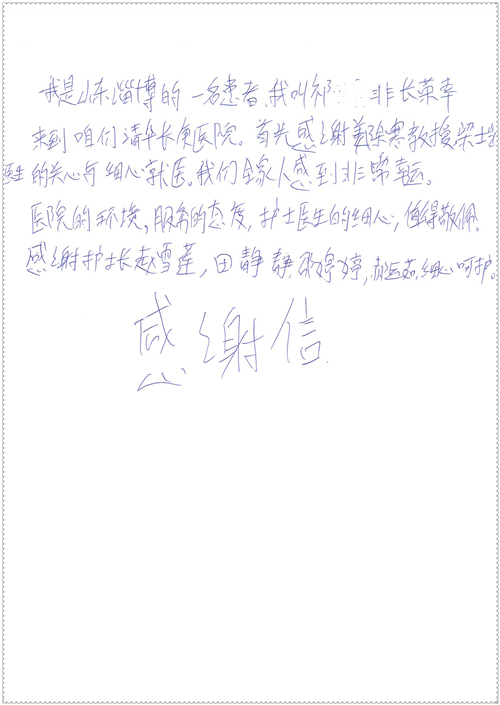 我是山东淄博的一名患者，我叫祁 非长荣幸
来到咱们清华长庚医院。首先感谢姜除寒教授梁士凯
医生的关心与细心就医。我们全家人感到非常幸运。
医院的环境，服务的态度，护士医生的细心，值得敬佩。
感谢护士长赵雪莲，田静静，邵婷婷，细心呵护。
感谢信